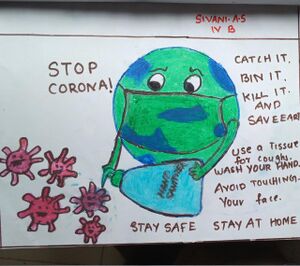 SIVANI.A.S
IV B
STOP
CORONA!
CATCH IT.
BIN IT.
KILL IT.
AND
SAVE EARTH
HAND
SANITIZER
Use a Tissue
for cough.
WASH YOUR HAND.
AVOID TOUCHING.
Your face.
STAY SAFE STAY AT HOME